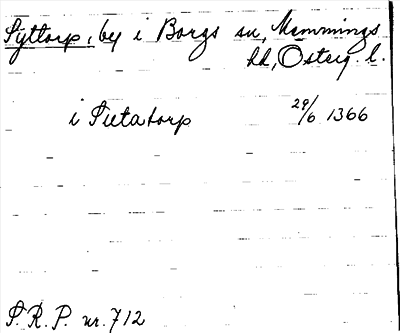 Syttorp, by i Borgs sn, Memmings
hd, Österg. l.
i Sutatorp 29/6 1366
S. R. P. nr. 712